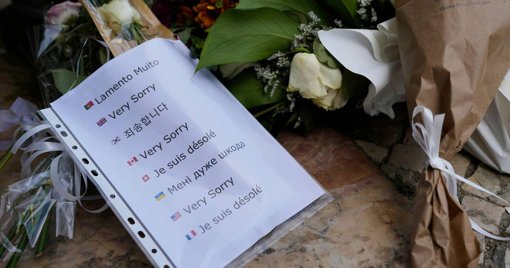 Lamento Muito
Very Sorry
죄송합니다
Very Sorry
Je suis désolé
Мені дуже шкода
Very Sorry
Je suis désolé